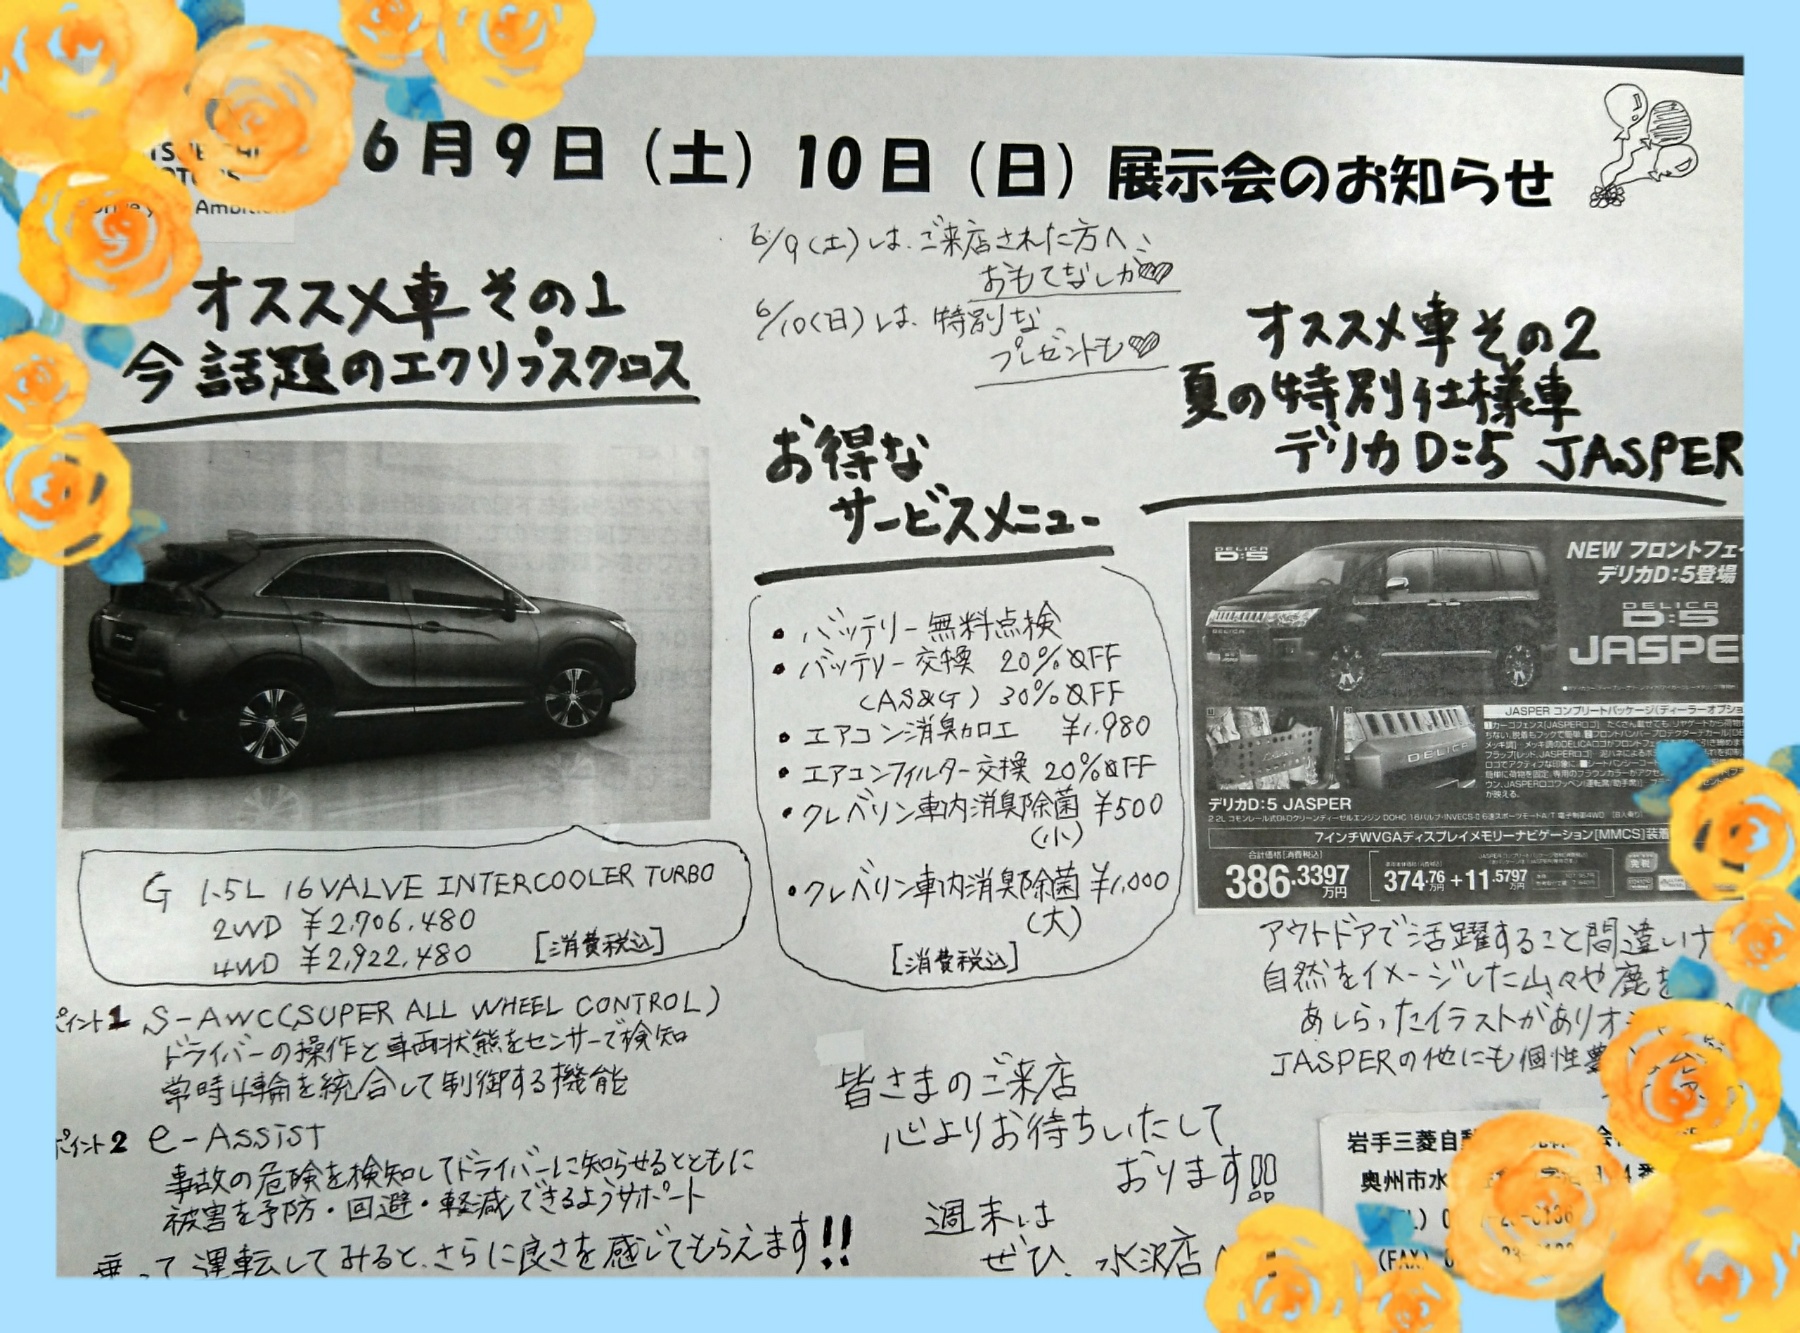 6月9日（土）10日（日）展示会のお知らせ
Ambition
6/9(土)は、ご来店された方へ
おもてなしが♡♡
6/10(日)は、特別な
プレゼントも♡
オススメ車 その1
今話題のエクリプスクロス
G 1.5L 16VALVE INTERCOOLER TURBO
2WD ¥2,706,480
4WD ¥2,922,480 [消費税込]
ポイント1 S-AWC(SUPER ALL WHEEL CONTROL)
ドライバーの操作と車両状態をセンサーで検知
常時4輪を統合して制御する機能
ポイント2 e-Assist
事故の危険を検知してドライバーに知らせるとともに
被害を予防・回避・軽減できるようサポート
乗って運転してみると、さらに良さを感じてもらえます!!
お得な
サービスメニュー
• バッテリー無料点検
• バッテリー交換 20%OFF
(AS&G) 30%OFF
• エアコン消臭加工 ¥1,980
• エアコンフィルター交換 20%OFF
• クレベリン車内消臭除菌 ¥500
(小)
• クレベリン車内消臭除菌 ¥1,000
(大)
[消費税込]
皆さまのご来店
心よりお待ちいたして
おります!!
週末は
ぜひ、水沢店
オススメ車その2
夏の特別仕様車
デリカD:5 JASPER
DELICA
D:5
NEW フロントフェ
デリカD:5登場
DELICA
D:5
JASPE
JASPER コンプリートパッケージ(ディーラーオプショ
DELICA
デリカD:5 JASPER
2.2L コモンレール式DI-Dクリーンディーゼルエンジン DOHC 16バルブ・INVECS-II 6速スポーツモードA/T 電子制御4WD [8人乗り]
7インチWVGAディスプレイメモリーナビゲーション[MMCS]装着
合計価格[消費税込]
386.3397万円
374.76万円+11.5797万円
アウトドアで活躍すること間違いナ
自然をイメージした山々や鹿を
あしらったイラストがありオ
JASPERの他にも個性豊
岩手三菱自動
奥州市水
(FAX)